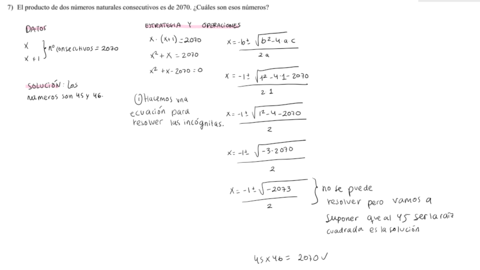 7) El producto de dos números naturales consecutivos es de 2070. ¿Cuáles son esos números?
DATOS
x
x + 1
} nº consecutivos = 2070
SOLUCIÓN: Los
números son 45 y 46.
ESTRATEGIA Y OPERACIONES
x · (x+1) = 2070
x² + x = 2070
x² + x - 2070 = 0
① Hacemos una
ecuación para
resolver las incógnitas.
x = -b ± √b² - 4 a c / 2a
x = -1 ± √1² - 4 · 1 - 2070 / 2·1
x = -1 ± √1² - 4 - 2070 / 2
x = -1 ± √-3 - 2070 / 2
x = -1 ± √-2073 / 2
} no se puede
resolver pero vamos a
suponer que al 45 ser la raíz
cuadrada es la solución
45 x 46 = 2070 ✓